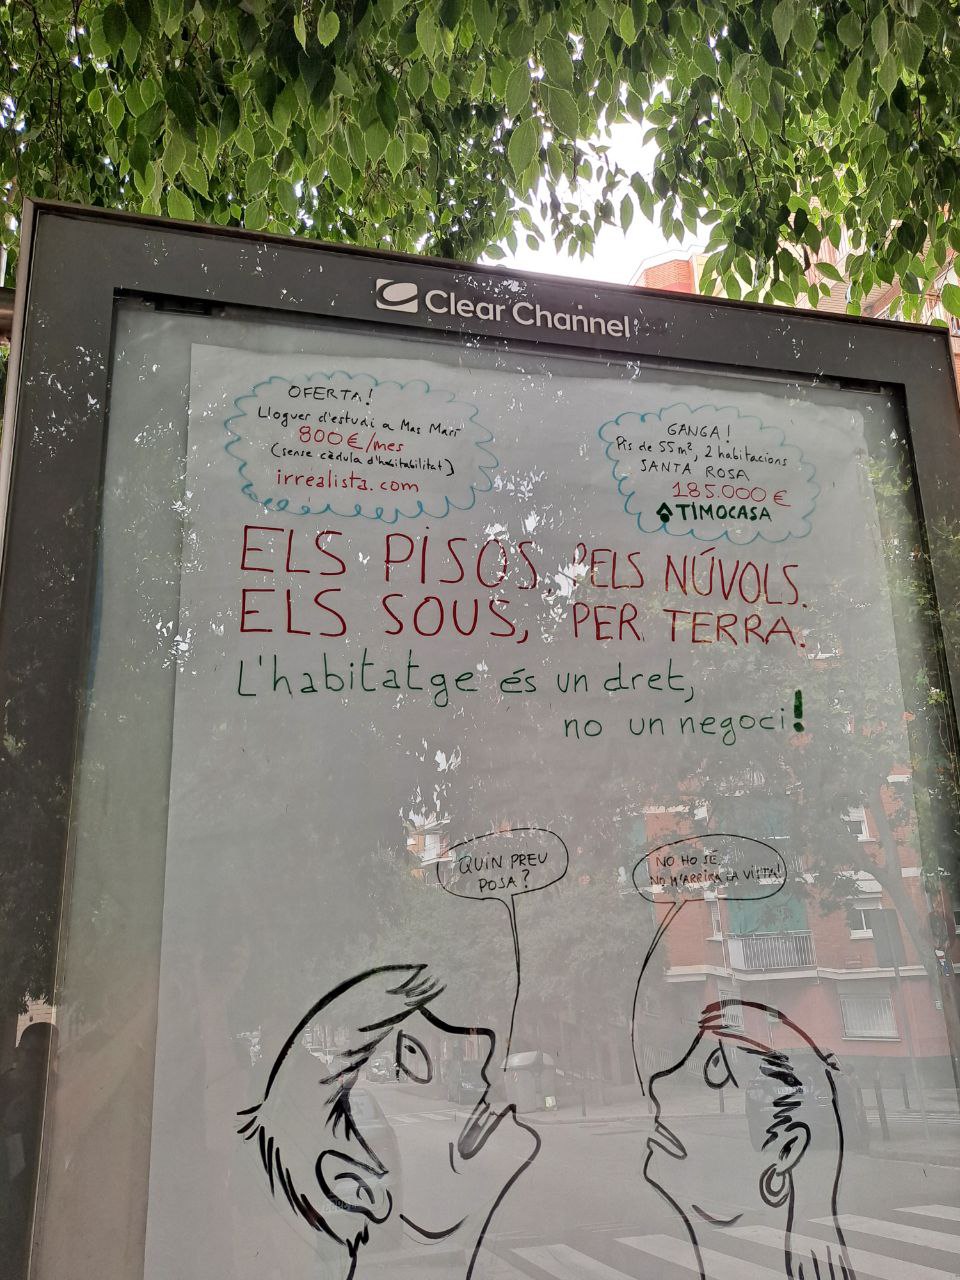 Clear Channel
OFERTA!
Lloguer d'estudi a Mas Marí
800€/mes
(sense cèdula d'habitabilitat)
irrealista.com
GANGA!
Pis de 55m², 2 habitacions
SANTA ROSA
185.000 €
TIMOCASA
ELS PISOS, PELS NÚVOLS.
ELS SOUS, PER TERRA.
L'habitatge és un dret,
no un negoci!
QUIN PREU
POSA?
NO HO SÉ.
NO M'ARRIBA LA VISTA!